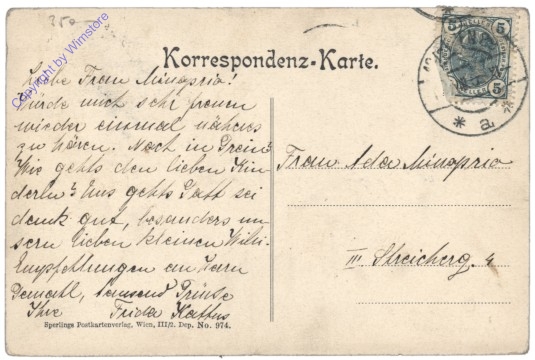 350
Copyright by Wimstore
Korrespondenz-Karte.
5 5
5
* a *
Liebe Frau Minoprio!
Würde mich sehr freuen
wieder einmal näheres
zu hören. Noch in
Wie gehts den lieben Kin
derln? Uns gehts Gott sei
dank gut, besonders un
sern lieben kleinen Willi.
Empfehlungen an Herrn
Gemahl, tausend Grüsse
Ihre Frida
Frau Ada Minoprio
III Streicherg. 4
Sperlings Postkartenverlag, Wien, III/2. Dep. No. 974.